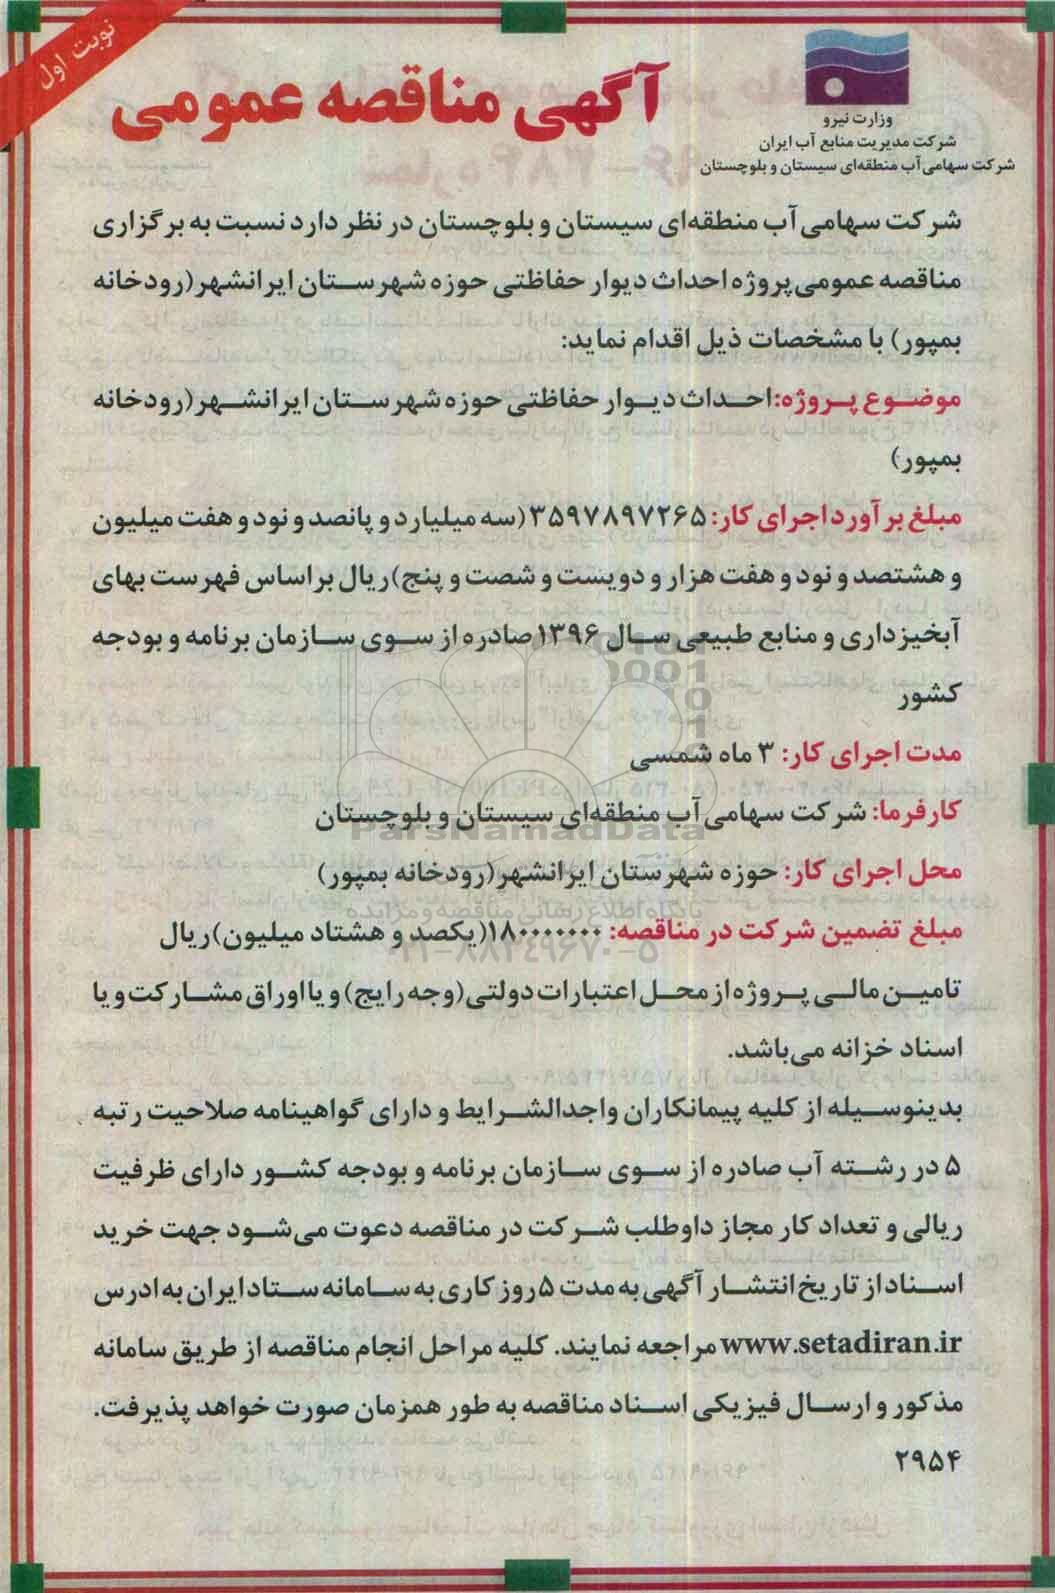 نوبت اول
وزارت نیرو
شرکت مدیریت منابع آب ایران
شرکت سهامی آب منطقه‌ای سیستان و بلوچستان
آگهی مناقصه عمومی
شرکت سهامی آب منطقه‌ای سیستان و بلوچستان در نظر دارد نسبت به برگزاری
مناقصه عمومی پروژه احداث دیوار حفاظتی حوزه شهرستان ایرانشهر(رودخانه
بمپور) با مشخصات ذیل اقدام نماید:
موضوع پروژه:احداث دیوار حفاظتی حوزه شهرستان ایرانشهر(رودخانه
بمپور)
مبلغ برآورد اجرای کار: ۳۵۹۷۸۹۷۲۶۵(سه میلیارد و پانصد و نود و هفت میلیون
و هشتصد و نود و هفت هزار و دویست و شصت و پنج)ریال براساس فهرست بهای
آبخیزداری و منابع طبیعی سال ۱۳۹۶صادره از سوی سازمان برنامه و بودجه
کشور
مدت اجرای کار: ۳ ماه شمسی
کارفرما: شرکت سهامی آب منطقه‌ای سیستان و بلوچستان
ParsNamadData
محل اجرای کار: حوزه شهرستان ایرانشهر(رودخانه بمپور)
پایگاه اطلاع رسانی مناقصه و مزایده
مبلغ تضمین شرکت در مناقصه: ۱۸۰۰۰۰۰۰۰(یکصد و هشتاد میلیون)ریال
۰۲۱-۸۸۳۴۹۶۷۰-۵
تامین مالی پروژه از محل اعتبارات دولتی(وجه رایج) و یا اوراق مشارکت و یا
اسناد خزانه می‌باشد.
بدینوسیله از کلیه پیمانکاران واجدالشرایط و دارای گواهینامه صلاحیت رتبه
۵ در رشته آب صادره از سوی سازمان برنامه و بودجه کشور دارای ظرفیت
ریالی و تعداد کار مجاز داوطلب شرکت در مناقصه دعوت می‌شود جهت خرید
اسناد از تاریخ انتشار آگهی به مدت ۵ روز کاری به سامانه ستاد ایران به ادرس
www.setadiran.ir مراجعه نمایند. کلیه مراحل انجام مناقصه از طریق سامانه
مذکور و ارسال فیزیکی اسناد مناقصه به طور همزمان صورت خواهد پذیرفت.
۲۹۵۴